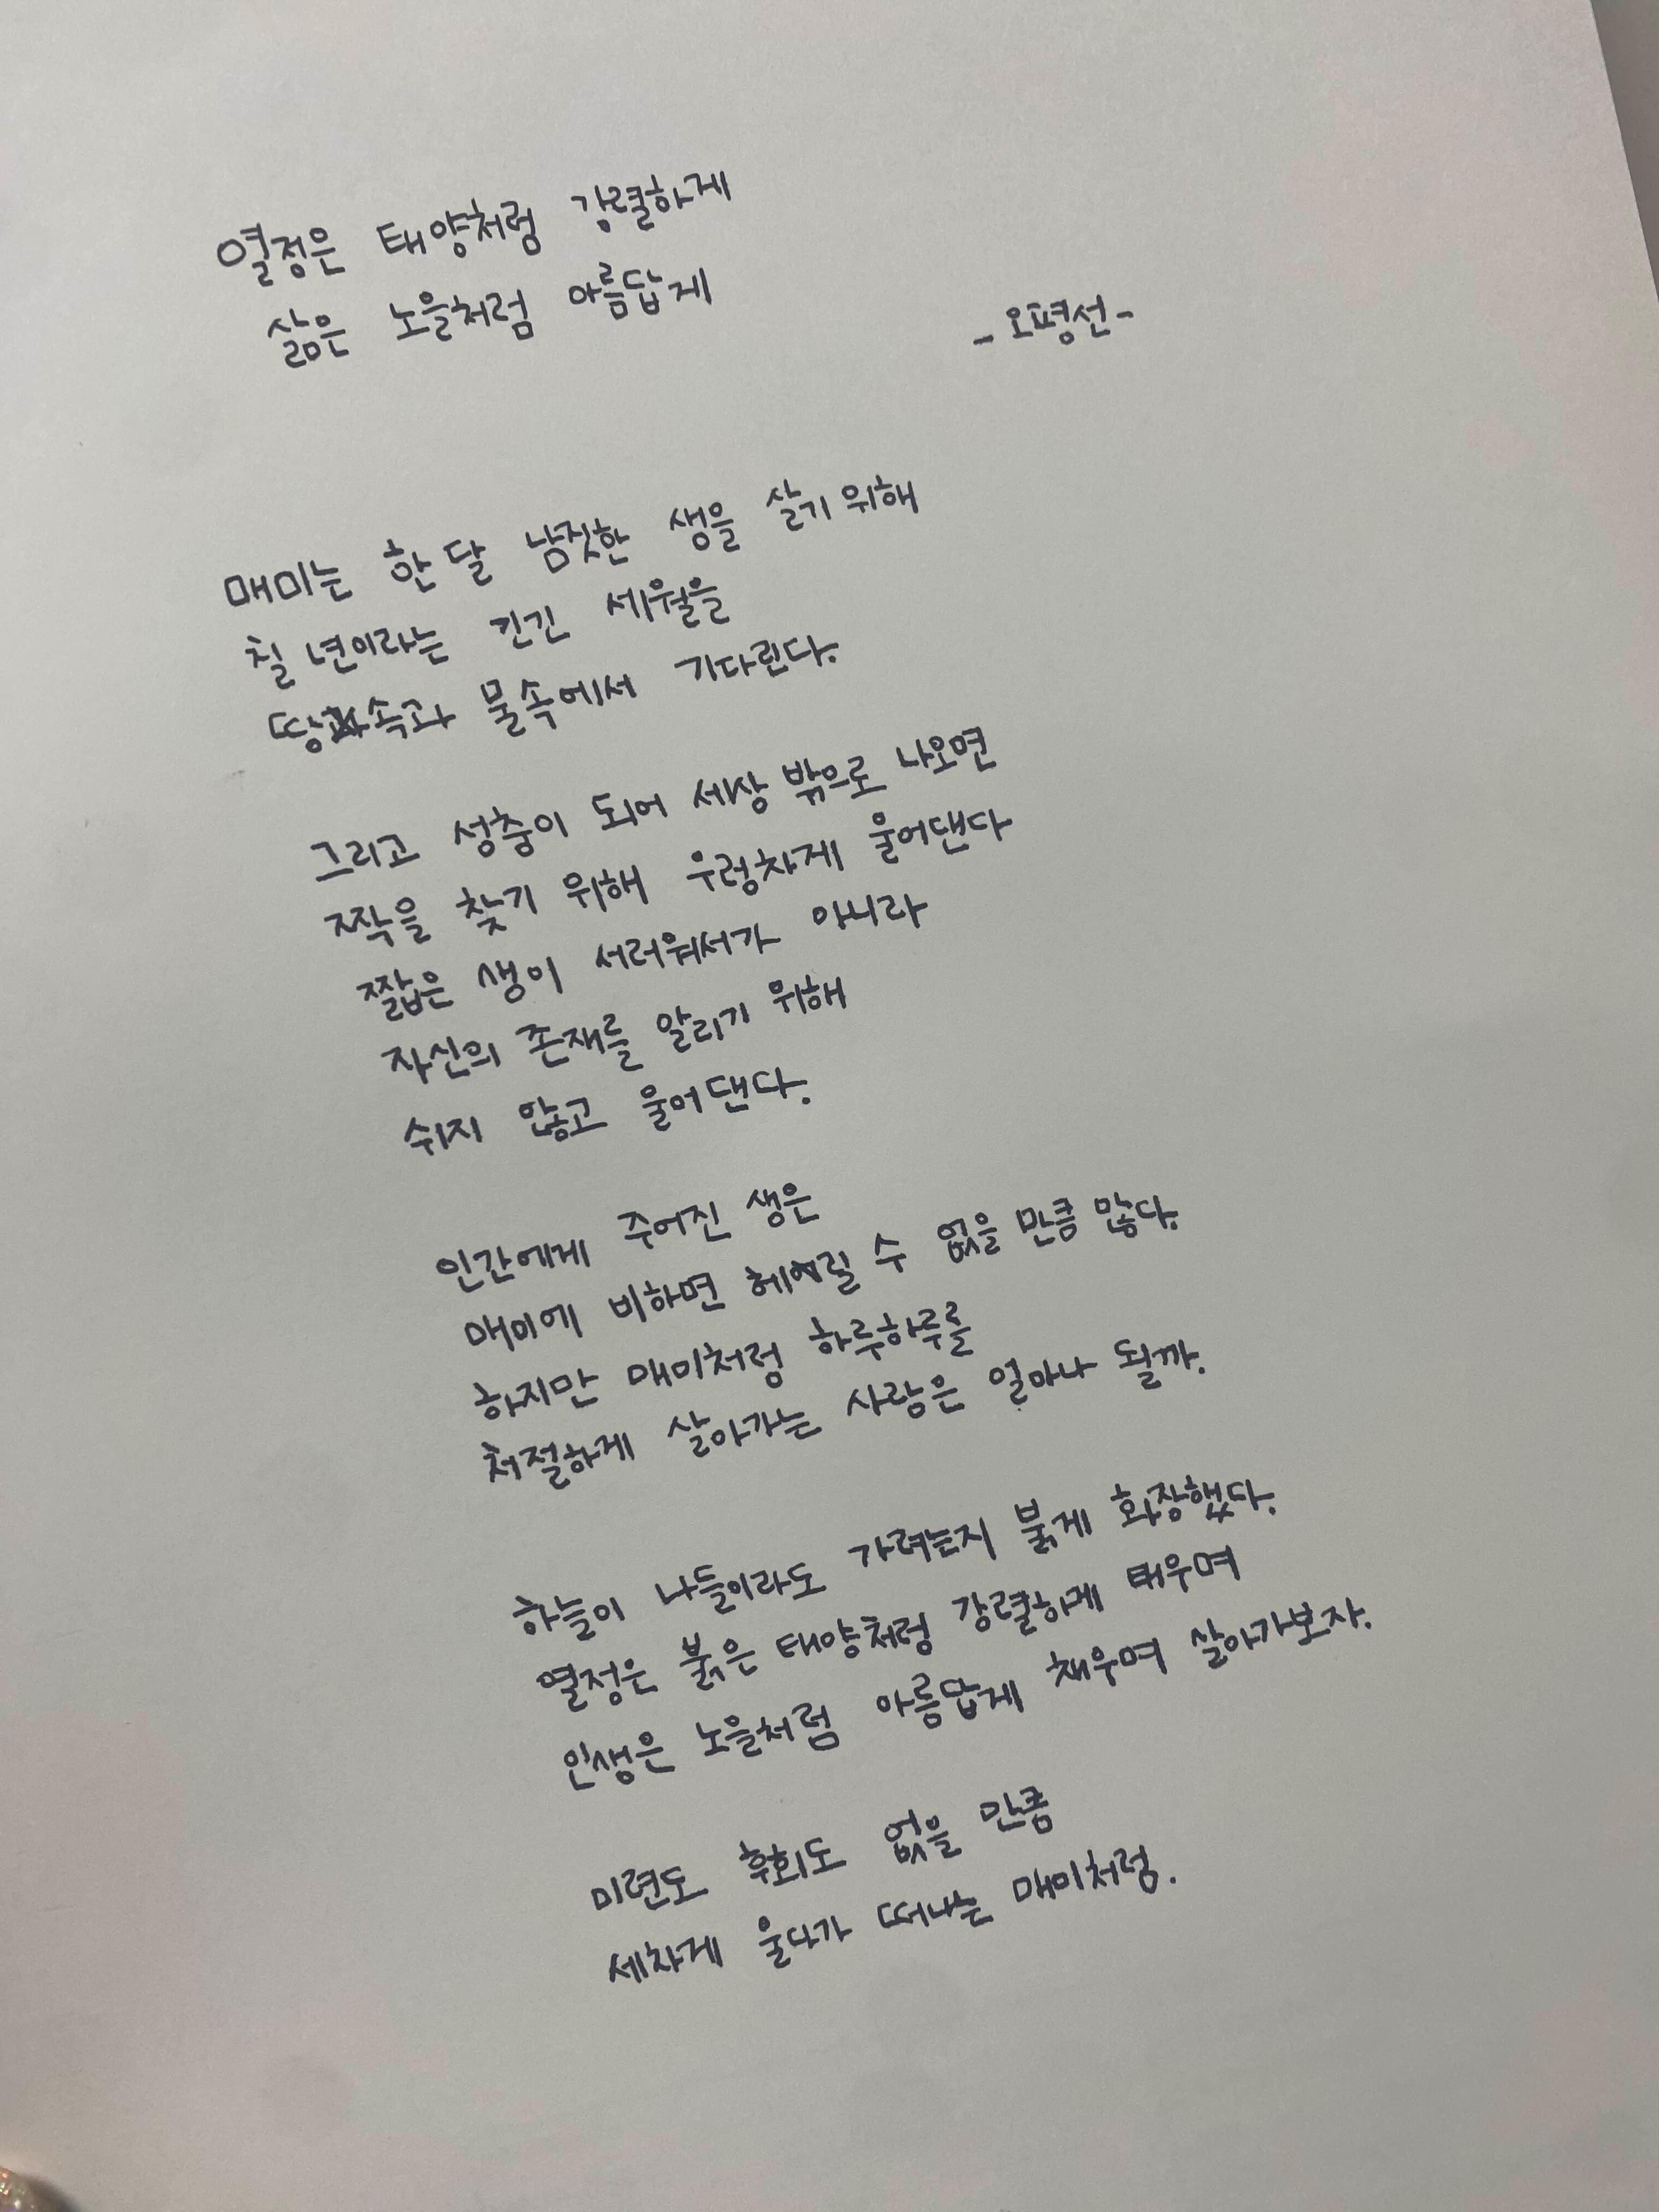 열정은 태양처럼 강렬하게
삶은 노을처럼 아름답게
- 오평선 -
매미는 한 달 남짓한 생을 살기 위해
칠 년이라는 긴긴 세월을
땅속과 물속에서 기다린다.
그리고 성충이 되어 세상 밖으로 나오면
짝을 찾기 위해 우렁차게 울어댄다
짧은 생이 서러워서가 아니라
자신의 존재를 알리기 위해
쉬지 않고 울어댄다.
인간에게 주어진 생은
매미에 비하면 헤아릴 수 없을 만큼 많다.
하지만 매미처럼 하루하루를
처절하게 살아가는 사람은 얼마나 될까.
하늘이 나들이라도 가려는지 붉게 화장했다.
열정은 붉은 태양처럼 강렬하게 태우며
인생은 노을처럼 아름답게 채우며 살아가보자.
미련도 후회도 없을 만큼
세차게 울다가 떠나는 매미처럼.